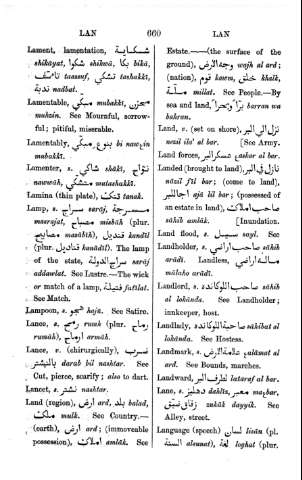 LAN 660 LAN
Lament, lamentation, شكاية
shikáyat, شكوا shikwá, بكا biká,
تاسف tassuf, تشكي tashakkí,
ندبة nadbat.
Lamentable, مبكي mubakkí, محزن
muhzin. See Mournful, sorrow-
ful; pitiful, miserable.
Lamentably, بنوع مبكي bi naw in
mabakkí.
Lamenter, s. شاكي shákí, نواح
nawwáh, متشكي mutashakkí.
Lamina (thin plate), تنك tanak.
Lamp, s. سراج saráj, مسرجة
masrajat, مصباح misbáh (plur.
مصابيح masábíh), قنديل kandíl
(plur. قناديل kanádíl). The lamp
of the state, سراج الدولة saráj
addawlat. See Lustre.—The wick
or match of a lamp, فتيلة fatílat.
See Match.
Lampoon, s. هجو hajo. See Satire.
Lance, s. رمح rumh (plur. رماح
rumáh), ارماح armáh.
Lance, v. (chirurgically), ضرب
بالنيشتر darab bil nashtar. See
Cut, pierce, scarify; also to dart.
Lancet, s. نشتر nashtar.
Land (region), ارض ard, بلد balad,
ملك mulk. See Country.—
(earth), ارض ard; (immoveable
possession), املاك amlák. See
Estate.—(the surface of the
ground), وجه الارض wajh al ard;
(nation), قوم kawm, خلق khalk,
ملة millat. See People.—By
sea and land, براً وبحراً barran wa
bahran.
Land, v. (set on shore), نزل الي البر
nazil ila' al bar. (See Army.
Land forces, عسكر البر askar al bar.
Landed (brought to land), نازل في البر
názil fil bar; (come to land),
اجا للبر ajá lil bar; (possessed of
an estate in land), صاحب املاك
sáhib amlák. (Inundation.
Land flood, s. سيل sayl. See
Landholder, s. صاحب اراضي sáhib
arádí. Landless, ماله اراضي
málaho arádí.
Landlord, s. صاحب اللوكاندة sáhib
al lokánda. See Landholder;
innkeeper, host.
Landlady, صاحبة اللوكاندة sáhibat al
lokánda. See Hostess.
Landmark, s. علامة الارض ạlámat al
ard. See Bounds, marches.
Landward, لطرف البر lataraf al bar.
Lane, s. دهليز dahlíz, معبر mạbar,
زقاق ضيق zukák dayyik. See
Alley, street.
Language (speech) لسان lisán (pl.
السنة alsunat), لغة loghat (plur.